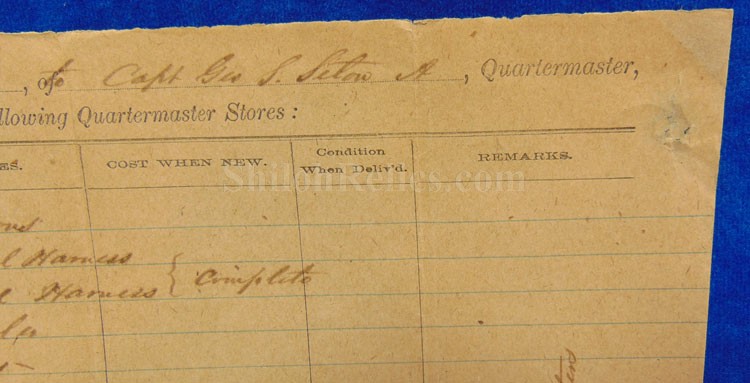 , of to Capt Geo S. Seton A , Quartermaster,
llowing Quartermaster Stores :
ES. COST WHEN NEW. Condition When Deliv'd. REMARKS.
ShilohRelics.com
l Harness
Harness } Complete